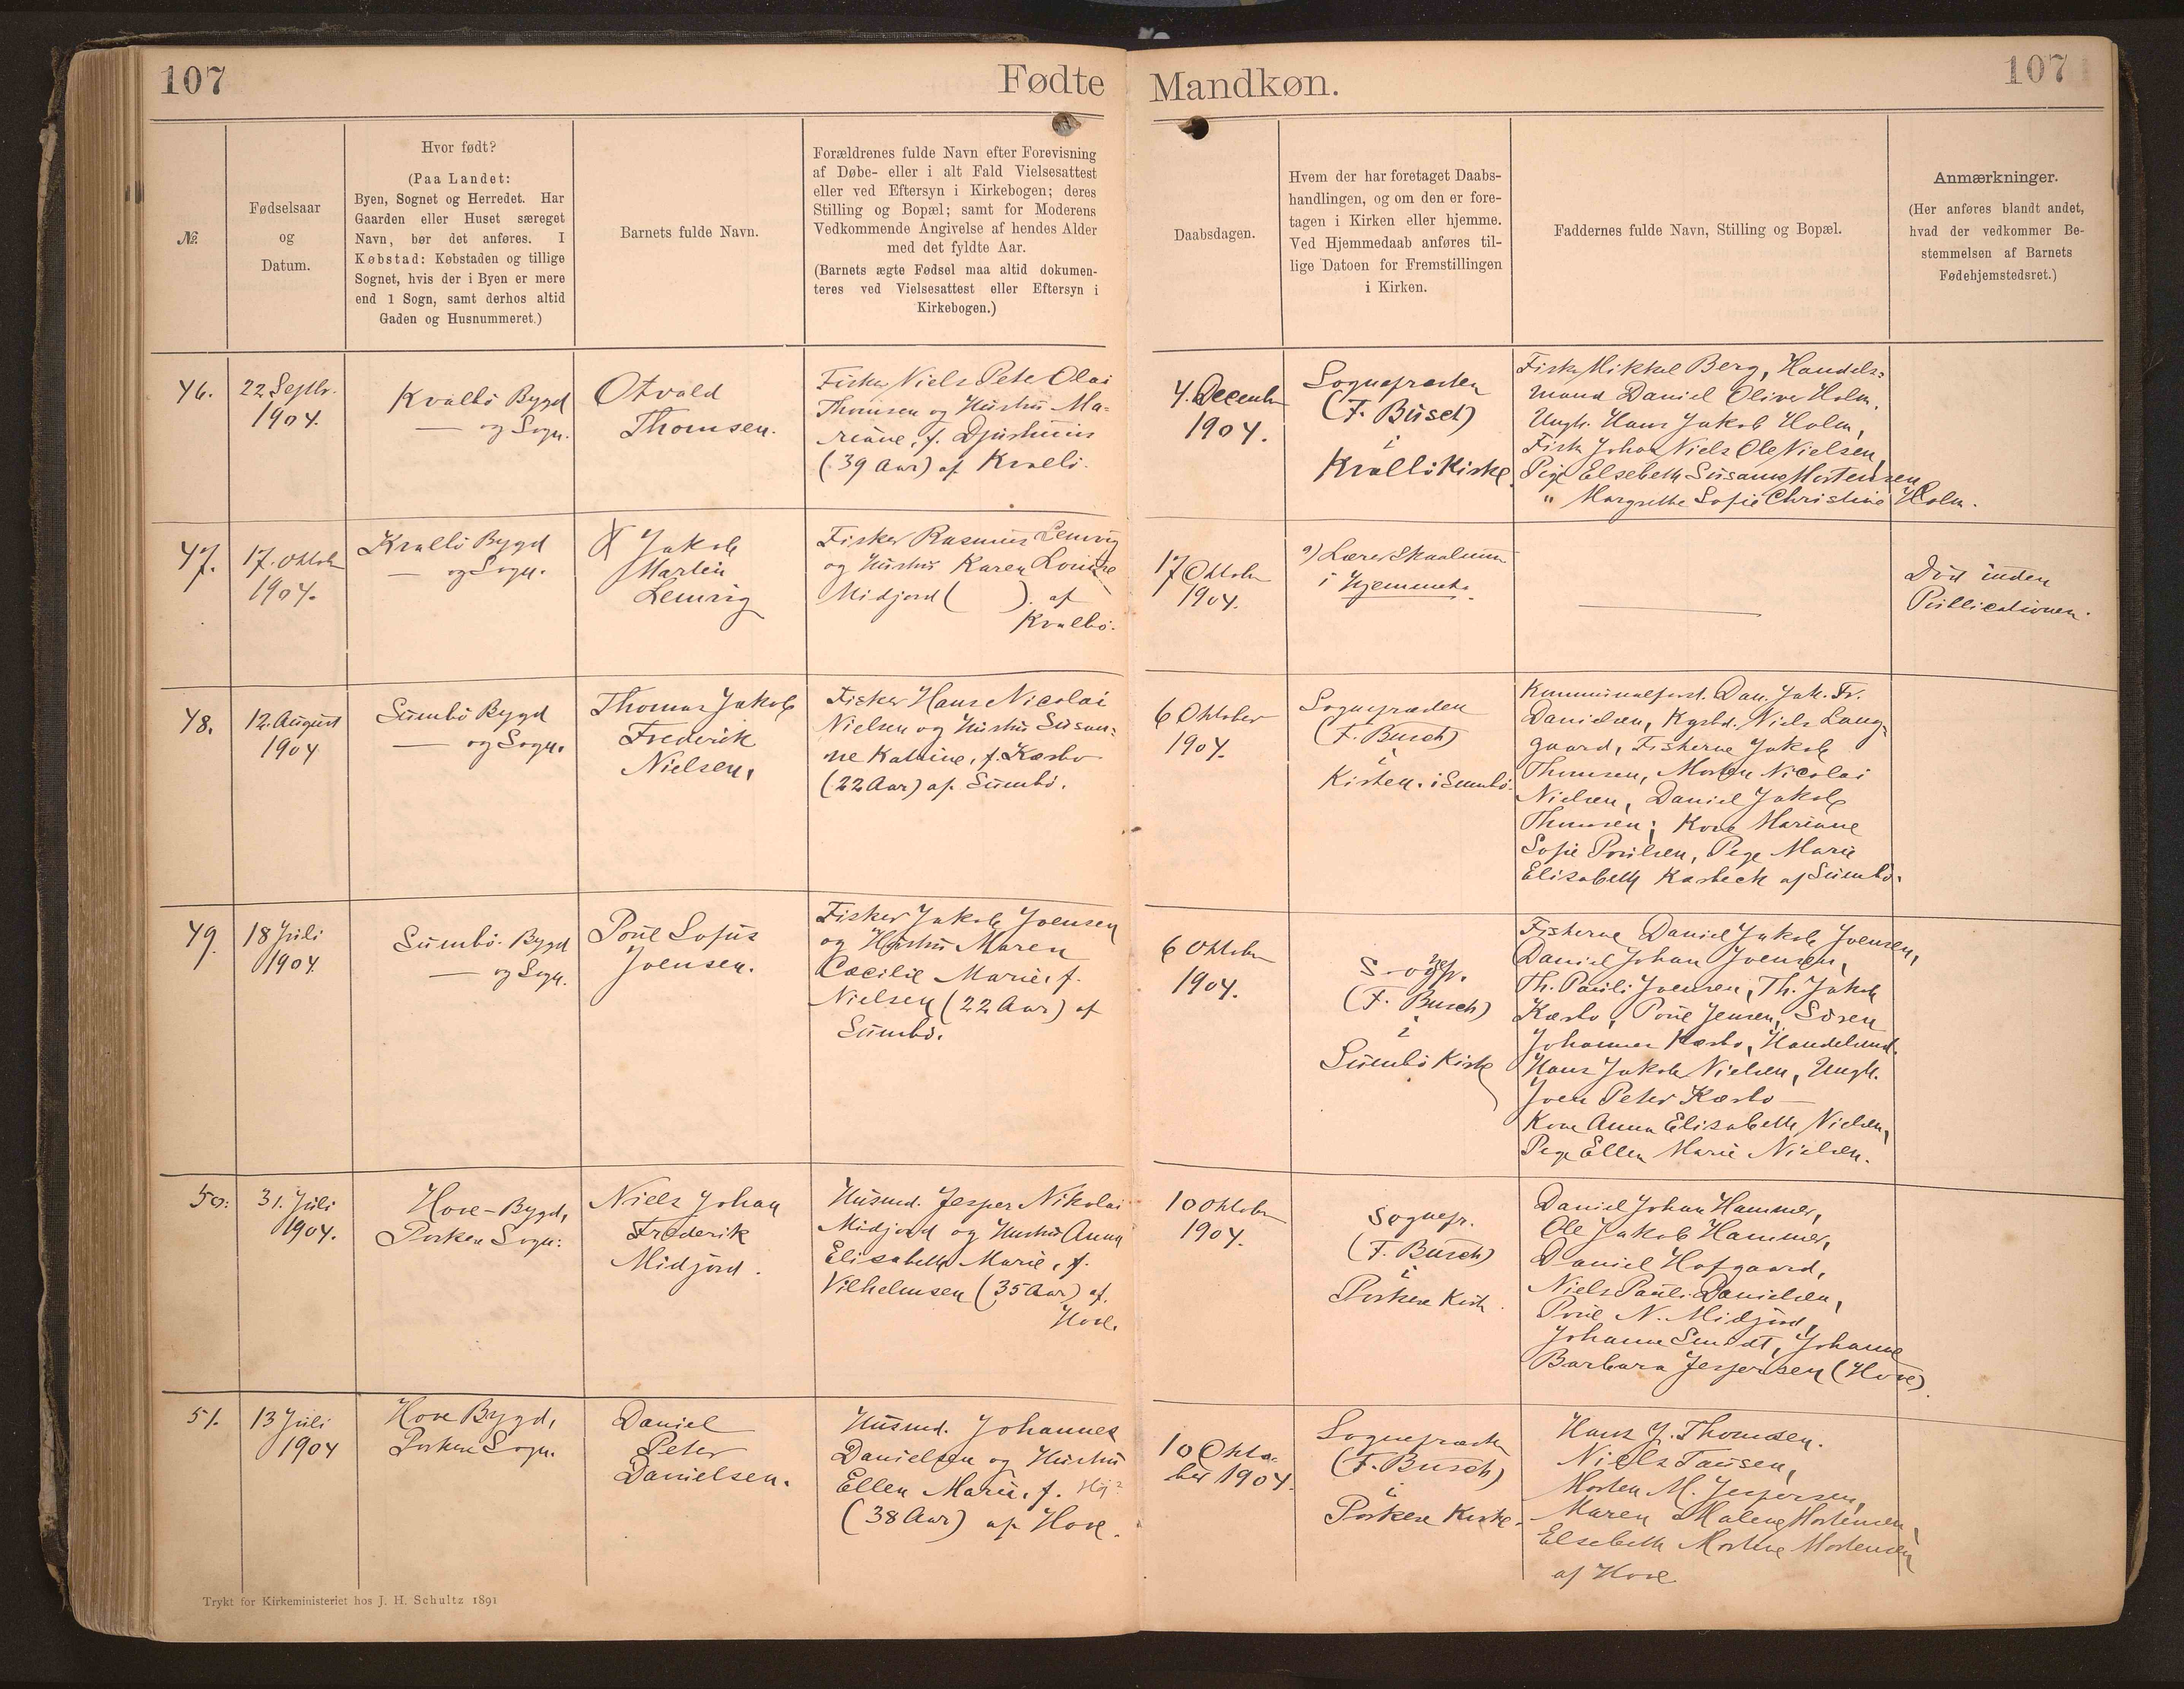 107
Fødte
Mandkøn.
107
№
Fødselsaar
og
Datum.
Hvor født?
(Paa Landet:
Byen, Sognet og Herredet. Har
Gaarden eller Huset særeget
Navn, bør det anføres. I
Købstad: Købstaden og tillige
Sognet, hvis der i Byen er mere
end 1 Sogn, samt derhos altid
Gaden og Husnummeret.)
Barnets fulde Navn.
Forældrenes fulde Navn efter Forevisning
af Døbe- eller i alt Fald Vielsesattest
eller ved Eftersyn i Kirkebogen; deres
Stilling og Bopæl; samt for Moderens
Vedkommende Angivelse af hendes Alder
med det fyldte Aar.
(Barnets ægte Fødsel maa altid dokumen-
teres ved Vielsesattest eller Eftersyn i
Kirkebogen.)
Daabsdagen.
Hvem der har foretaget Daabs-
handlingen, og om den er fore-
tagen i Kirken eller hjemme.
Ved Hjemmedaab anføres til-
lige Datoen for Fremstillingen
i Kirken.
Faddernes fulde Navn, Stilling og Bopæl.
Anmærkninger.
(Her anføres blandt andet,
hvad der vedkommer Be-
stemmelsen af Barnets
Fødehjemstedsret.)
46.
22 Septbr.
1904.
Kvalbö Bygd
— og Sogn.
Otvald
Thomsen.
Fisker Niels Peter Olai
Thomsen og Hustru Ma-
riane, f. Djurhuus
(39 Aar) af Kvalbö.
4. Decembr
1904.
Sognepræsten
(F. Busch)
i
Kvalbö Kirke.
Fisker Mikkel Berg, Handels-
mand Daniel Oliver Holm,
Ungk. Hans Jakob Holm,
Fisk. Johan Niels Ole Nielsen,
Pige Elsebeth Susanne Mortensen,
" Margrethe Sofie Christine Holm.
47.
17. Oktob
1904.
Kvalbö Bygd
— og Sogn.
Jakob
Martin
Lemvig
Fisker Rasmus Lemvig
og Hustru Karen Louise
Midjord ( ). af
Kvalbö.
17 Oktober
1904.
Lærer Skaalum
i Hjemmet.
Död inden
Publicationen.
48.
12. August
1904
Sumbö Bygd
— og Sogn.
Thomas Jakob
Frederik
Nielsen.
Fisker Hans Nicolai
Nielsen og Hustru Susan-
ne Katrine, f. Kærbo
(22 Aar) af Sumbö.
6 Oktober
1904.
Sognepræsten
(F. Busch)
i
Kirken i Sumbö.
Kommunalforst. Dan. Jak. Fr.
Danielsen, Kgsbd. Niels Lang-
gaard, Fiskerne Jakob
Thomsen, Morten Nicolai
Nielsen, Daniel Jakob
Thomsen; Kone Mariane
Sofie Poulsen, Pige Marie
Elisabeth Kærbech af Sumbö.
49.
18 Juli
1904.
Sumbö Bygd
— og Sogn.
Poul Sofus
Joensen.
Fisker Jakob Joensen
og Hustru Maren
Cæcilie Marie, f.
Nielsen (22 Aar) af
Sumbö.
6 Oktober
1904.
Sognepr.
(F. Busch)
i
Sumbö Kirke
Fiskerne Daniel Jakob Joensen,
Daniel Johan Joensen,
Th. Pauli Joensen, Th. Jakob
Kærbo, Poul Jensen, Sören
Johannes Kærbo, Handelsmd.
Hans Jakob Nielsen, Ungk.
Joen Peter Kærbo —
Kone Anna Elisabeth Nielsen,
Pige Ellen Marie Nielsen.
50.
31. Juli
1904.
Hove-Bygd,
Porkere Sogn.
Niels Johan
Frederik
Midjord.
Husmd. Jesper Nikolai
Midjord og Hustru Anna
Elisabeth Marie, f.
Vilhelmsen (35 Aar) af
Hove.
10 Oktober
1904.
Sognepr.
(F. Busch)
i
Porkere Kirke.
Daniel Johan Hammer,
Ole Jakob Hammer,
Daniel Hofgaard,
Niels Pauli Danielsen,
Poul N. Midjord,
Johanne Smidt, Johanne
Barbara Jespersen (Hove).
51.
13 Juli
1904
Hove Bygd,
Porkere Sogn.
Daniel
Peter
Danielsen.
Husmd. Johannes
Danielsen og Hustru
Ellen Marie, f. Höj?
(38 Aar) af Hove.
10 Okto-
ber 1904.
Sognepræsten
(F. Busch)
i
Porkere Kirke.
Hans J. Thomsen.
Niels Tausen,
Morten M. Jespersen,
Maren Malene Mortensen,
Elsebeth Mortine Mortensen
af Hove
Trykt for Kirkeministeriet hos J. H. Schultz 1891